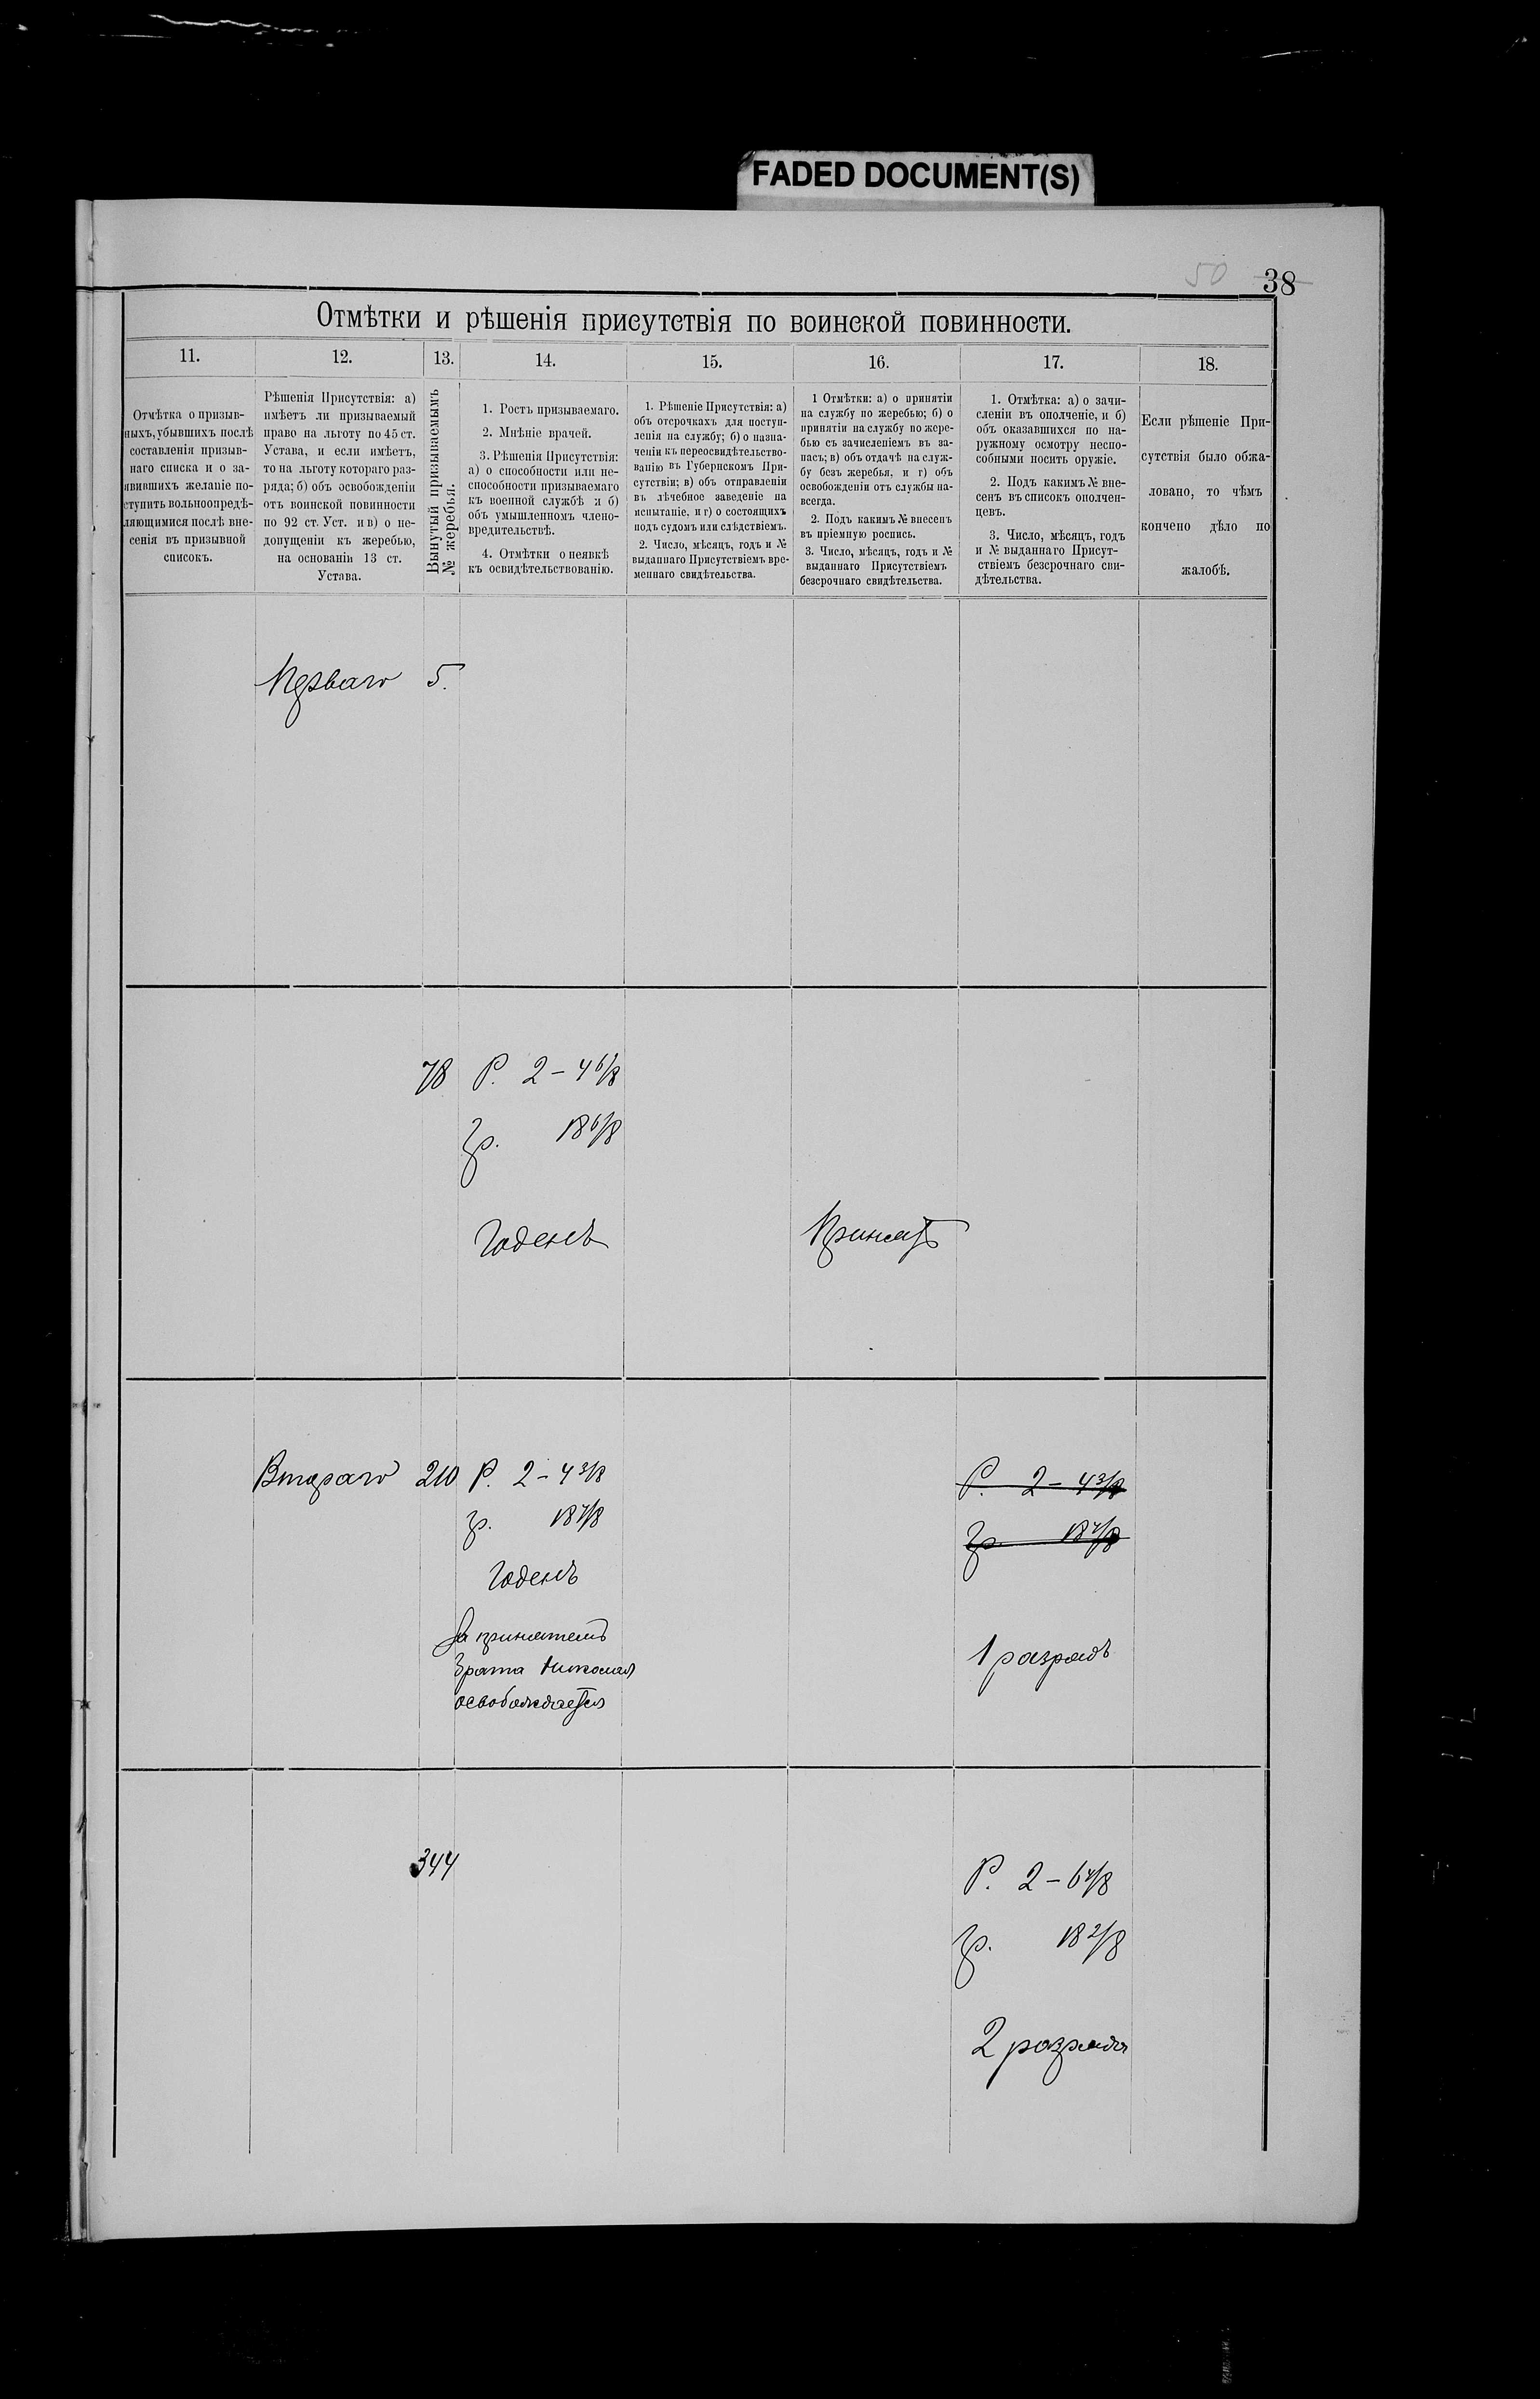 FADED DOCUMENT(S)
50 38
Отмѣтки и рѣшенія присутствія по воинской повинности.
11.
12.
13.
14.
15.
16.
17.
18.
Отмѣтка о призыв-
ныхъ, убывшихъ послѣ
составленія призыв-
наго списка и о за-
явившихъ желаніе по-
ступить вольноопредѣ-
ляющимися послѣ вне-
сенія въ призывной
списокъ.
Рѣшенія Присутствія: а)
имѣетъ ли призываемый
право на льготу по 45 ст.
Устава, и если имѣетъ,
то на льготу котораго раз-
ряда; б) объ освобожденіи
отъ воинской повинности
по 92 ст. Уст. и в) о не-
допущеніи къ жеребью,
на основаніи 13 ст.
Устава.
Вынутый призываемымъ
№ жеребья.
1. Ростъ призываемаго.
2. Мнѣніе врачей.
3. Рѣшенія Присутствія:
а) о способности или не-
способности призываемаго
къ военной службѣ и б)
объ умышленномъ члено-
вредительствѣ.
4. Отмѣтки о неявкѣ
къ освидѣтельствованію.
1. Рѣшеніе Присутствія: а)
объ отсрочкахъ для поступ-
ленія на службу; б) о назна-
ченіи къ переосвидѣтельство-
ванію въ Губернскомъ При-
сутствіи; в) объ отправленіи
въ лѣчебное заведеніе на
испытаніе, и г) о состоящихъ
подъ судомъ или слѣдствіемъ.
2. Число, мѣсяцъ, годъ и №
выданнаго Присутствіемъ вре-
меннаго свидѣтельства.
1 Отмѣтки: а) о принятіи
на службу по жеребью; б) о
принятіи на службу по жере-
бью съ зачисленіемъ въ за-
пасъ; в) объ отдачѣ на служ-
бу безъ жеребья, и г) объ
освобожденіи отъ службы на-
всегда.
2. Подъ какимъ № внесенъ
въ пріемную роспись.
3. Число, мѣсяцъ, годъ и №
выданнаго Присутствіемъ
безсрочнаго свидѣтельства.
1. Отмѣтка: а) о зачи-
сленіи въ ополченіе, и б)
объ оказавшихся по на-
ружному осмотру неспо-
собными носить оружіе.
2. Подъ какимъ № вне-
сенъ въ списокъ ополчен-
цевъ.
3. Число, мѣсяцъ, годъ
и № выданнаго Присут-
ствіемъ безсрочнаго сви-
дѣтельства.
Если рѣшеніе При-
сутствія было обжа-
ловано, то чѣмъ
кончено дѣло по
жалобѣ.
Перваго 5.
78 Р. 2 – 4 6/8
Гр. 18 6/8
Годенъ
Принятъ
Втораго 210 Р. 2 – 4 3/8
гр. 18 4/8
Годенъ
За принятіемъ
брата Николая
освобождается
Р. 2 – 4 3/8
Гр. 18 4/8
1 разрядъ
344
Р. 2 – 6 4/8
Гр. 18 2/8
2 разряда